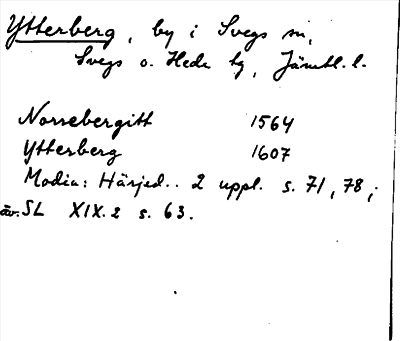 Ytterberg, by i Svegs sn,
Svegs o. Hede tg, Jämtl. l.
Norrebergitt 1564
Ytterberg 1607
Modin: Härjed.. 2 uppl. s. 71, 78;
äv. SL XIX.2 s. 63.